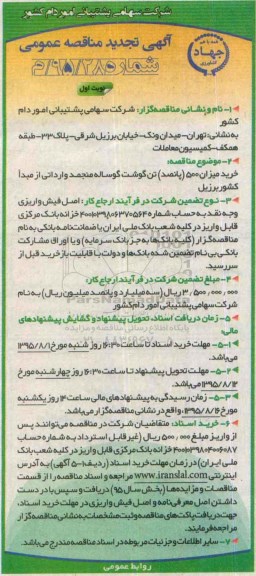 شرکت سهامی پشتیبانی امور دام کشور
آگهی تجدید مناقصه عمومی
شماره ۹۵/۲۸۵/م
نوبت اول
جهاد
۱- نام و نشانی مناقصه‌گزار: شرکت سهامی پشتیبانی امور دام
کشور
به نشانی: تهران- میدان ونک- خیابان برزیل شرقی- پلاک ۳۳- طبقه
همکف- کمیسیون معاملات
۲- موضوع مناقصه:
خرید میزان ۵۰۰ (پانصد) تن گوشت گوساله منجمد وارداتی از مبدأ
کشور برزیل
۳- نوع تضمین شرکت در فرآیند ارجاع کار: اصل فیش واریزی
وجه نقد به حساب شماره خزانه بانک مرکزی
قابل واریز در کلیه شعب بانک ملی ایران یا ضمانت‌نامه بانکی به نام
مناقصه‌گزار (کلیه بانک‌ها به جز بانک سرمایه) و یا اوراق مشارکت
بانکی بی‌نام تضمین شده بانک‌ها و دولت با قابلیت بازخرید قبل از
سررسید
۴- مبلغ تضمین شرکت در فرآیند ارجاع کار:
۳٫۵۰۰٫۰۰۰٫۰۰۰ ریال (سه میلیارد و پانصد میلیون ریال) به نام
شرکت سهامی پشتیبانی امور دام کشور
۵- زمان دریافت اسناد، تحویل پیشنهاد و گشایش پیشنهادهای
مالی:
۵-۱- مهلت خرید اسناد تا ساعت ۱۶:۳۰ روز شنبه مورخ ۱۳۹۵/۸/۱
می‌باشد.
۵-۲- مهلت تحویل پیشنهاد تا ساعت ۱۶:۳۰ روز چهارشنبه مورخ
۱۳۹۵/۸/۱۲ می‌باشد.
۵-۳- زمان رسیدگی به پیشنهادهای مالی ساعت ۱۴ روز یکشنبه
مورخ ۱۳۹۵/۸/۱۶، واقع در نشانی مناقصه‌گزار می‌باشد.
۶- خرید اسناد: متقاضیان شرکت در مناقصه می‌توانند پس
از واریز مبلغ ۵۰۰٫۰۰۰ ریال (غیر قابل استرداد) به شماره حساب
خزانه بانک مرکزی قابل واریز در کلیه شعب بانک
ملی ایران) در زمان مهلت خرید اسناد (ردیف ۱-۵ آگهی) به آدرس
اینترنتی www.iranslal.com مراجعه و اسناد مناقصه را از قسمت
مناقصات و مزایده‌ها (بخش سال ۹۵) دریافت و سپس با در دست
داشتن اصل معرفی‌نامه و اصل فیش واریزی در مهلت خرید اسناد،
جهت دریافت پاکت‌های مناقصه و ثبت مشخصات به نشانی مناقصه‌گزار
مراجعه فرمایند.
۷- سایر اطلاعات و جزئیات مربوطه در اسناد مناقصه مندرج می‌باشد.
روابط عمومی